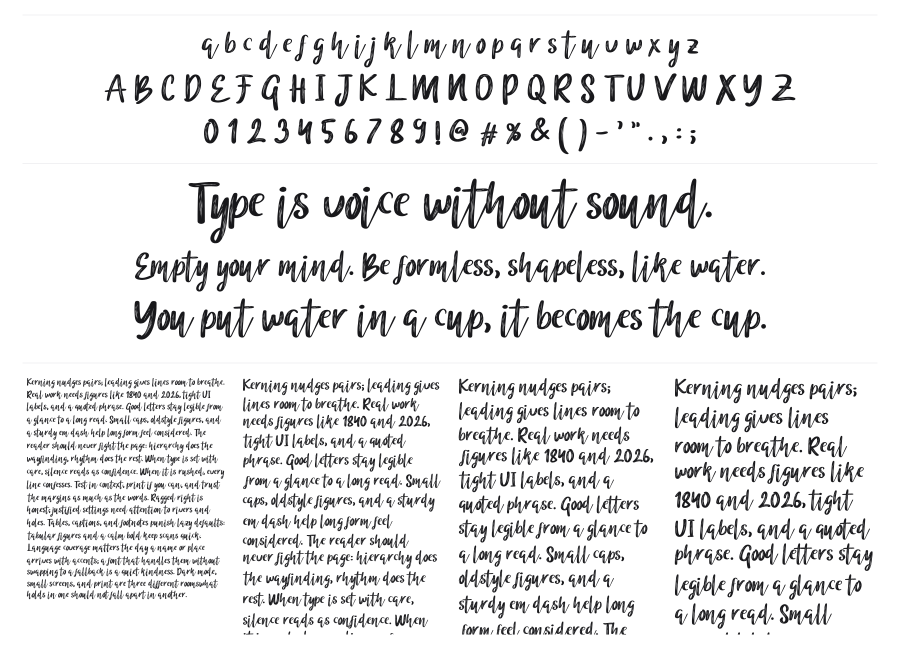 a b c d e f g h i j k l m n o p q r s t u v w x y z
A B C D E F G H I J K L M N O P Q R S T U V W X Y Z
0 1 2 3 4 5 6 7 8 9 ! @ # % & ( ) - ' " . , : ;
Type is voice without sound.
Empty your mind. Be formless, shapeless, like water.
You put water in a cup, it becomes the cup.
Kerning nudges pairs; leading gives lines room to breathe.
Real work needs figures like 1840 and 2026, tight UI
labels, and a quoted phrase. Good letters stay legible from
a glance to a long read. Small caps, oldstyle figures, and
a sturdy em dash help long form feel considered. The
reader should never fight the page: hierarchy does the
wayfinding, rhythm does the rest. When type is set with
care, silence reads as confidence. When it is rushed, every
line confesses. Test in context, print if you can, and trust
the margins as much as the words. Ragged right is
honest; justified settings need attention to rivers and
holes. Tables, captions, and footnotes punish lazy defaults:
tabular figures and a calm bold keep scans quick.
Language coverage matters the day a name or place
arrives with accents; a font that handles them without
swapping to a fallback is a quiet kindness. Dark mode,
small screens, and print are three different rooms; what
holds in one should not fall apart in another.
Kerning nudges pairs; leading gives
lines room to breathe. Real work
needs figures like 1840 and 2026,
tight UI labels, and a quoted
phrase. Good letters stay legible
from a glance to a long read. Small
caps, oldstyle figures, and a sturdy
em dash help long form feel
considered. The reader should
never fight the page: hierarchy does
the wayfinding, rhythm does the
rest. When type is set with care,
silence reads as confidence. When
Kerning nudges pairs;
leading gives lines room to
breathe. Real work needs
figures like 1840 and 2026,
tight UI labels, and a
quoted phrase. Good letters
stay legible from a glance to
a long read. Small caps,
oldstyle figures, and a
sturdy em dash help long
form feel considered. The
Kerning nudges pairs;
leading gives lines
room to breathe. Real
work needs figures like
1840 and 2026, tight
UI labels, and a quoted
phrase. Good letters stay
legible from a glance to
a long read. Small